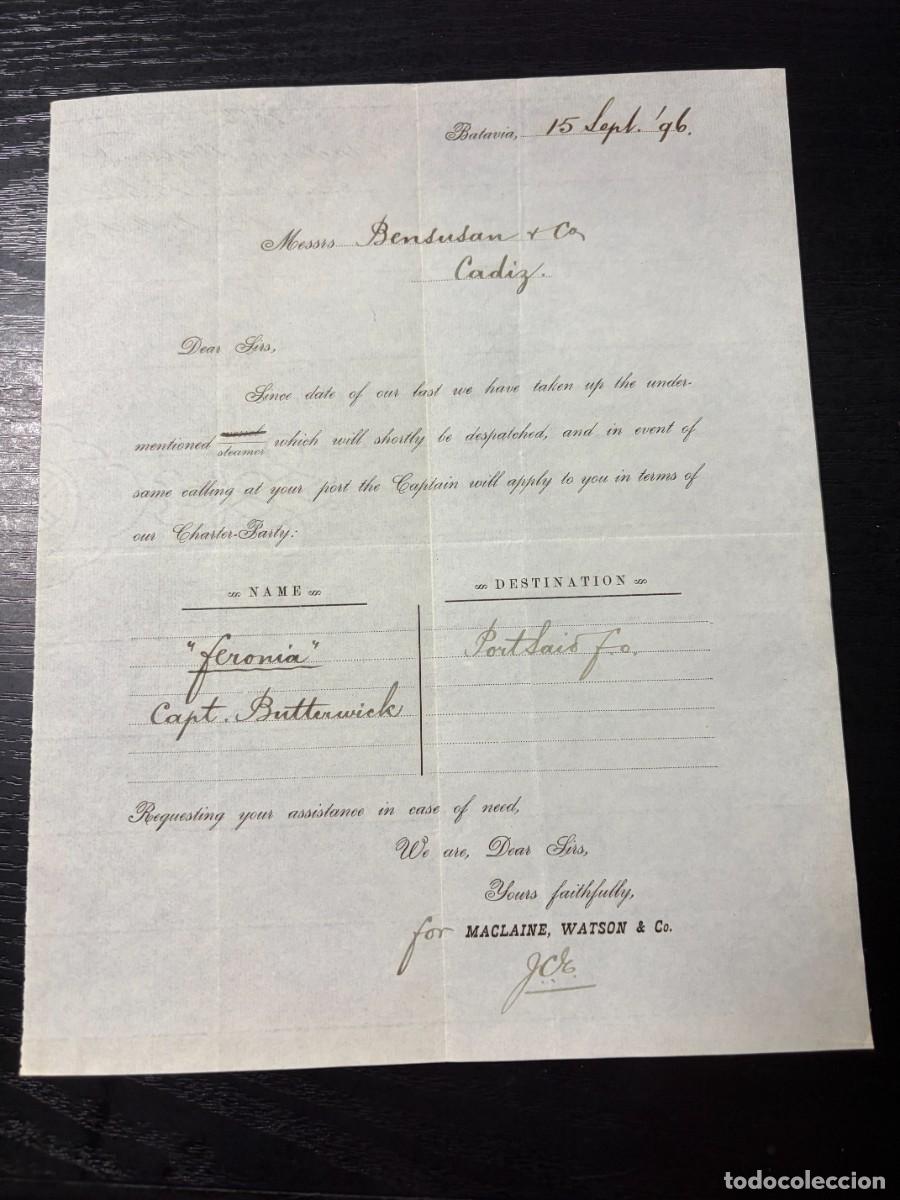 Batavia, 15 Sept. '96.
Messrs Bensusan & Co
Cadiz.
Dear Sirs,
Since date of our last we have taken up the under-
mentioned steamer which will shortly be despatched, and in event of
same calling at your port the Captain will apply to you in terms of
our Charter-Party:
NAME
DESTINATION
"Feronia"
Port Said f.o.
Capt. Butterwick
Requesting your assistance in case of need,
We are, Dear Sirs,
Yours faithfully,
for MACLAINE, WATSON & Co.
todocoleccion